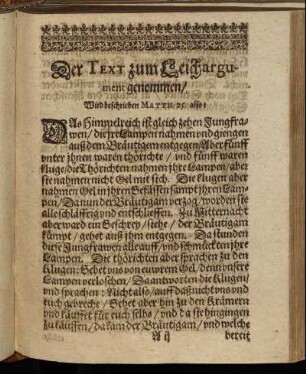 Der TEXT zum Leichargu-
ment genommen/
Vnd beschrieben MATTH. 25. also:
DAs Himmelreich ist gleich zehen Jungfra-
wen/ die jre Lampen nahmen vnd giengen
auß dem Bräutigam entgegen/ Aber fünff
vnter jhnen waren thörichte / vnd fünff waren
kluge/ die Thörichten nahmen jhre Lampen/ aber
sie nahmen nicht Oel mit sich. Die klugen aber
nahmen Oel in jhren Gefässen sampt jhren Lam-
pen/ Da nun der Bräutigam verzog/ worden sie
alle schläfferig vnd entschlieffen. Zu Mitternacht
aber ward ein Geschrey / siehe / der Bräutigam
kümpt / gehet auß jhm entgegen. Da stunden
diese Jungfrawen alle auff/ vnd schmückten jhre
Lampen. Die thörichten aber sprachen zu den
Klugen: Gebet vns von ewrem Oel/ denn vnsere
Lampen verloschen/ Da antworten die Klugen/
vnd sprachen: Nicht also/ auff daß nicht vns vnd
euch gebreche / Gehet aber hin zu den Krämern
vnd käuffet für euch selbs/ vnd da sie hingingen
zu käuffen/ da kam der Bräutigam / vnd welche
A ij bereit